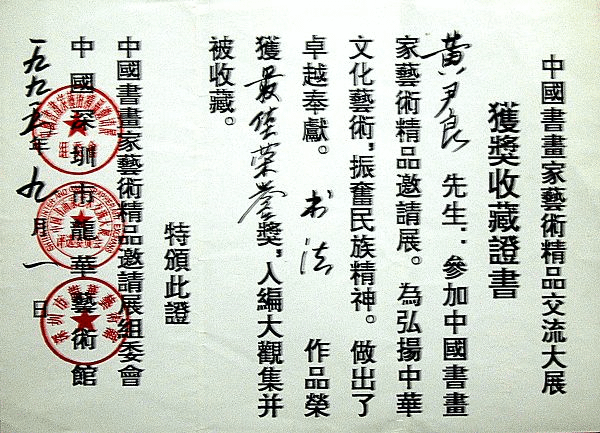 中國書畫家藝術精品交流大展
獲獎收藏證書
黄尹良 先生：參加中國書畫
家藝術精品邀請展。為弘揚中華
文化藝術，振奮民族精神。做出了
卓越奉獻。书法 作品榮
獲最佳荣誉獎，入編大觀集并
被收藏。
特頒此證
中國書畫家藝術精品邀請展組委會
中國深圳市龍華藝術館
一九九五年九月一日